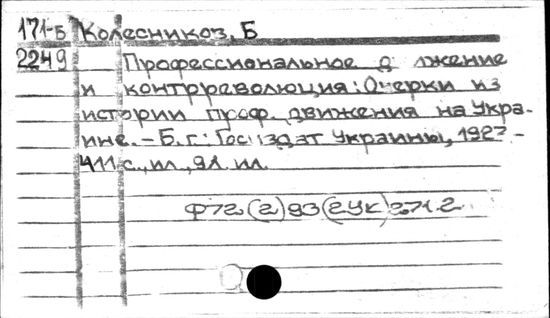 171-Б Колесников, Б
2249 Профессиональное д жение
и контрреволюция: Очерки из
истории проф. движения на Укра-
ине. - Б. г.: Госиздат Украины, 1923 -
411 с., ил., 9 л. ил.
Ф72(2)93(2Ук)271.2